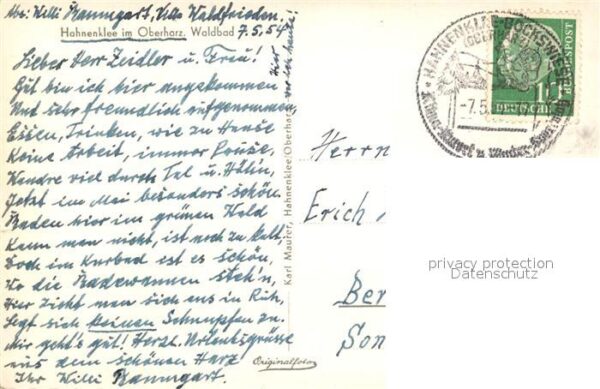 Abs: Willi Baumgart, Villa Waldfrieden.
Hahnenklee im Oberharz. Waldbad
7.5.54
Lieber Herr Zeidler u. Frau!
Gut bin ich hier angekommen
Und sehr freundlich aufgenommen,
Essen, Trinken, wie zu Hause
Keine Arbeit, immer Pause,
Wandre viel durch Tal u. Höh'n,
Jetzt im Mai besonders schön.
Baden hier im grünen Wald
Kann man nicht, ist noch zu kalt,
Doch im Kurbad ist es schön,
Wo die Badewannen steh'n,
Hier zieht man sich aus in Ruh,
Legt sich keinen Schnupfen zu.
Mir geht's gut! Herzl. Urlaubsgrüsse
aus dem schönen Harz
Ihr Willi Baumgart.
Karl Maurer, Hahnenklee/Oberharz
Originalfoto
HAHNENKLEE-BOCKSWIESE
(OBERHARZ)
-7.5
DEUTSCHE
BUNDESPOST
Herrn
Erich
Ber
Son
privacy protection
Datenschutz